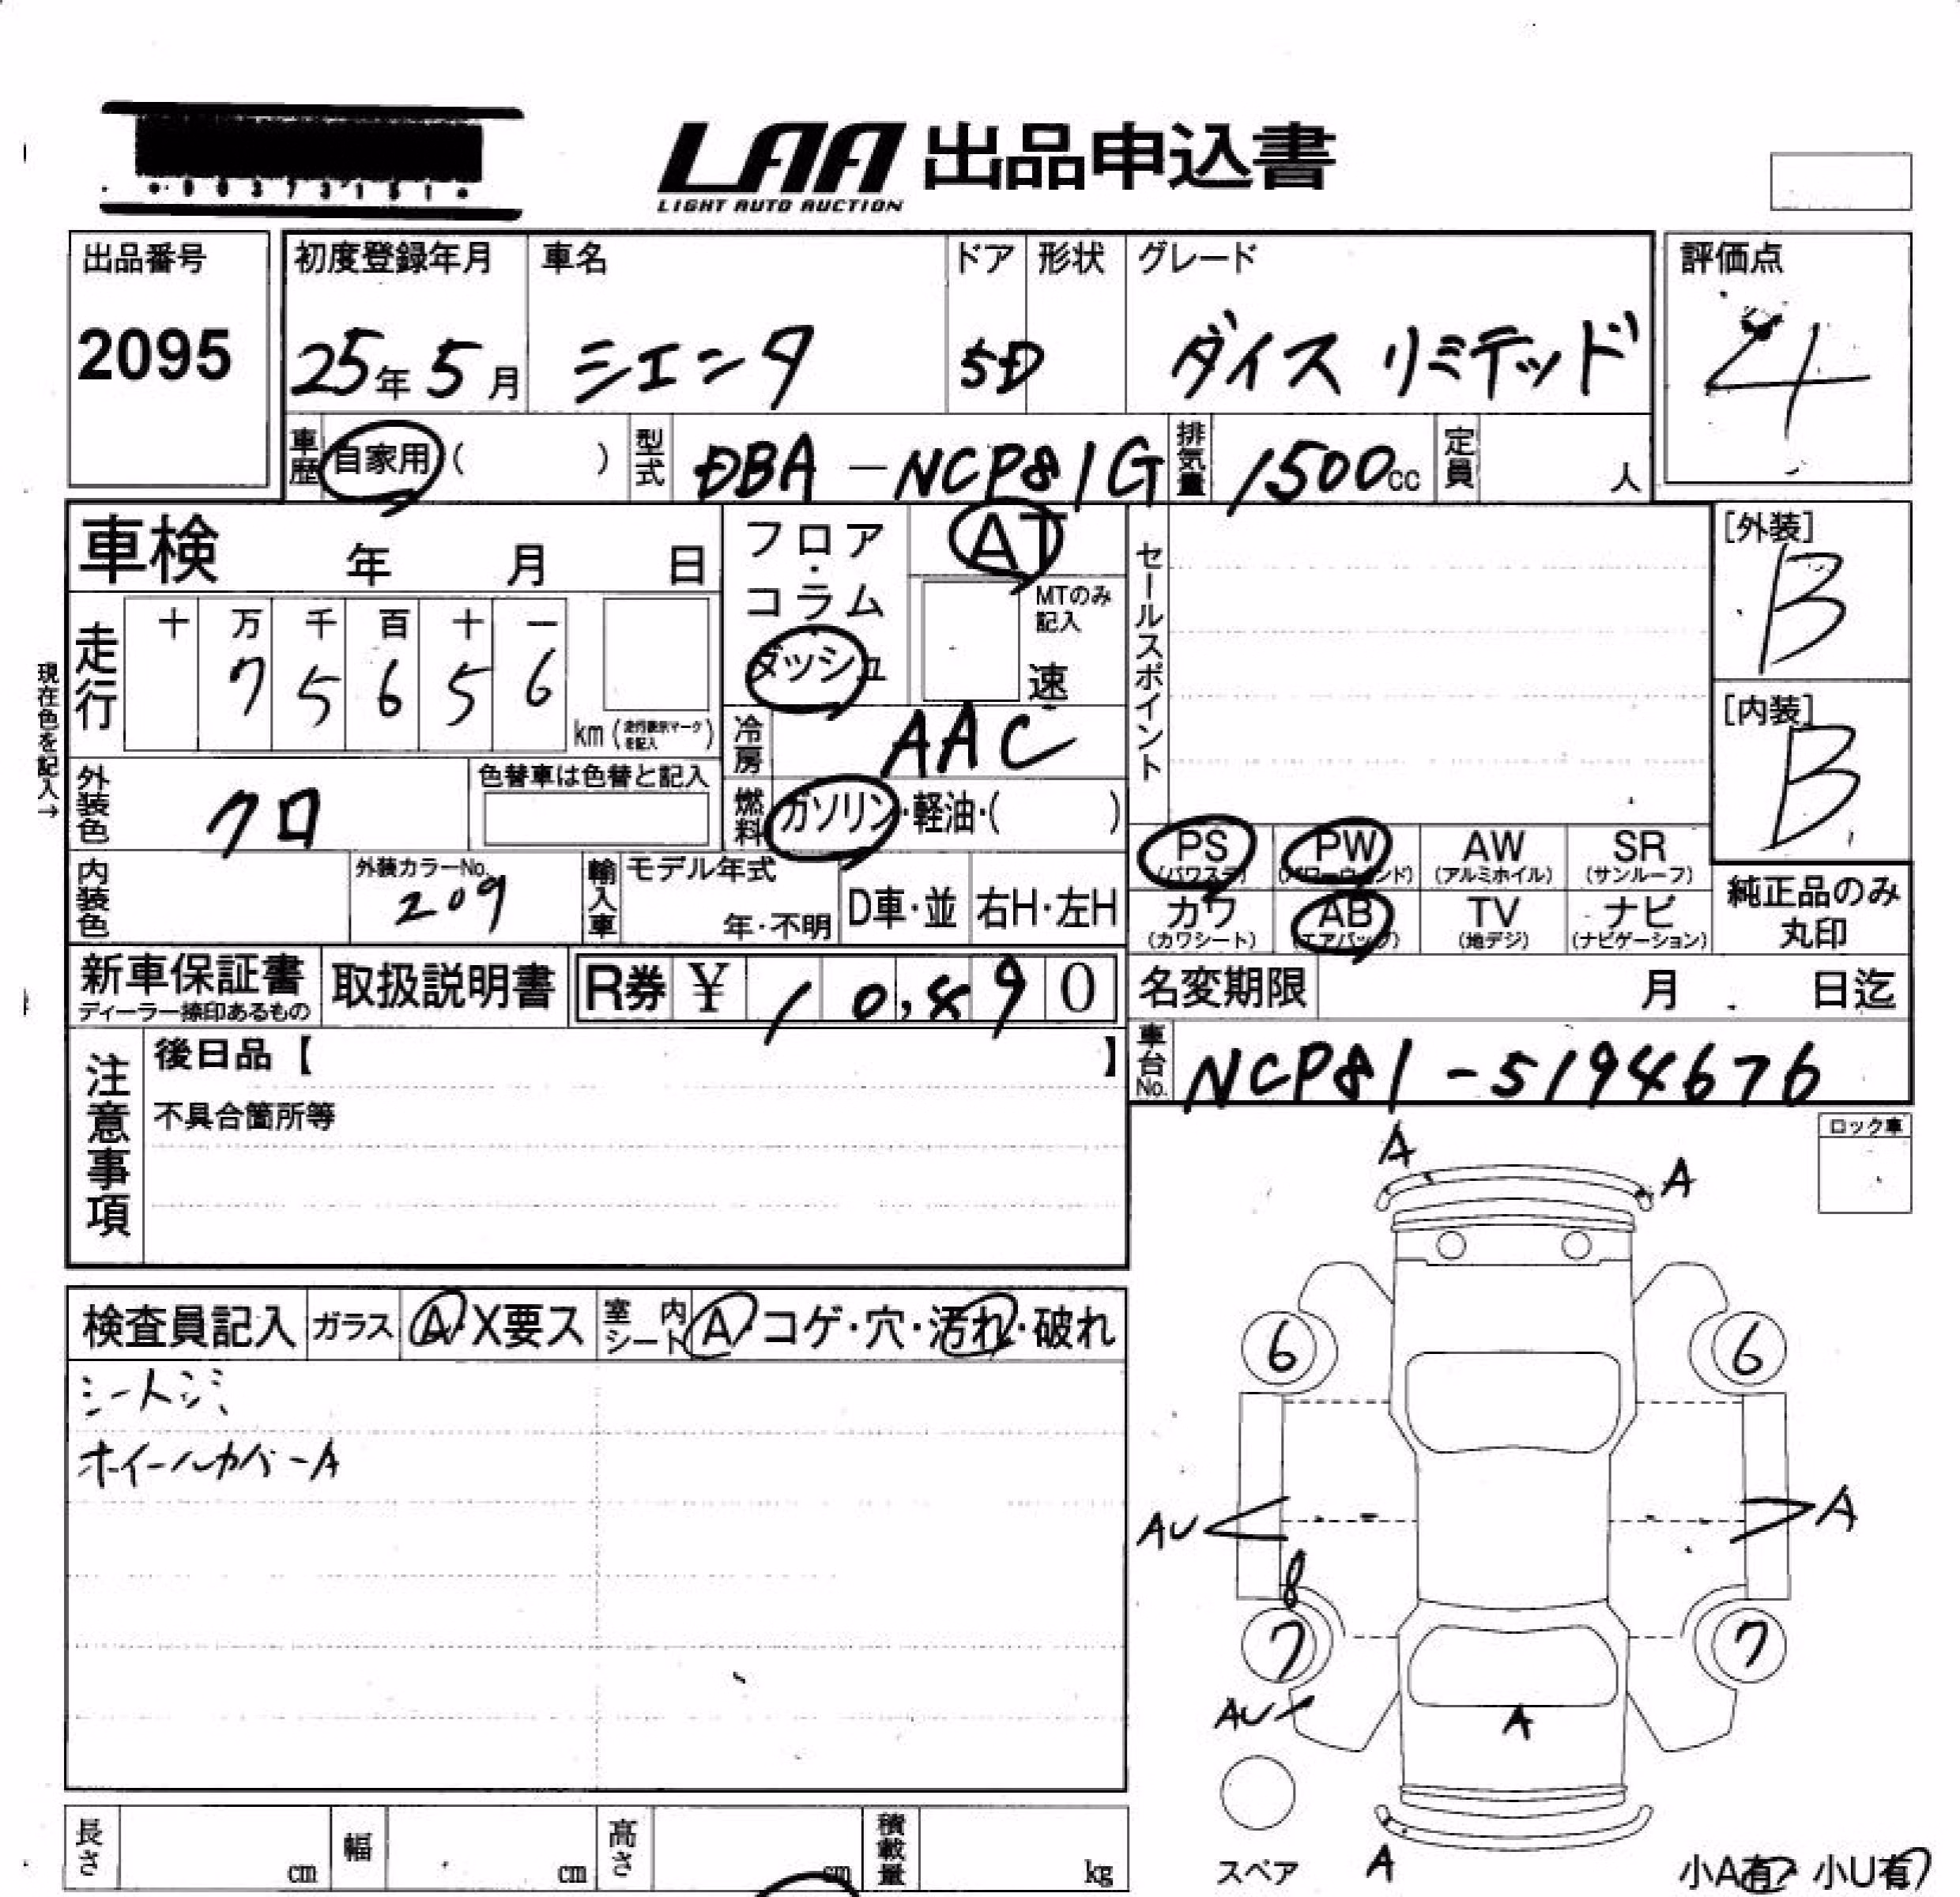 00373151
LAA 出品申込書
LIGHT AUTO AUCTION
出品番号
2095
初度登録年月
25年 5月
車名
シエンタ
ドア
5D
形状
グレード
ダイス リミテッド
評価点
4
車歴 自家用 ( )
型式 DBA-NCP81G
排気量 1500cc
定員 人
車検 年 月 日
フロア・コラム
ダッシュ
AT
MTのみ記入
速
セールスポイント
[外装]
B
[内装]
B
現在色を記入→
走行
十 万 千 百 十 一
7 5 6 5 6
km (走行表示マークを記入)
冷房 AAC
燃料 ガソリン・軽油・( )
外装色 クロ
色替車は色替と記入
内装色
外装カラーNo. 209
輸入車
モデル年式
年・不明
D車・並
右H・左H
PS (パワステ)
PW (パワーウインド)
AW (アルミホイル)
SR (サンルーフ)
カワ (カワシート)
AB (エアバッグ)
TV (地デジ)
ナビ (ナビゲーション)
純正品のみ
丸印
新車保証書
ディーラー捺印あるもの
取扱説明書
R券 ¥ 10,890
名変期限 月 日迄
車台No. NCP81-5194676
注意事項
後日品【 】
不具合箇所等
ロック車
検査員記入
ガラス A・X要ス
室内シート A・コゲ・穴・汚れ・破れ
シートシミ
ホイールカバーA
A
A
6
6
AU
A
8
7
7
AU
A
スペア
A
小A有 小U有
長さ cm
幅 cm
高さ cm
積載量 kg